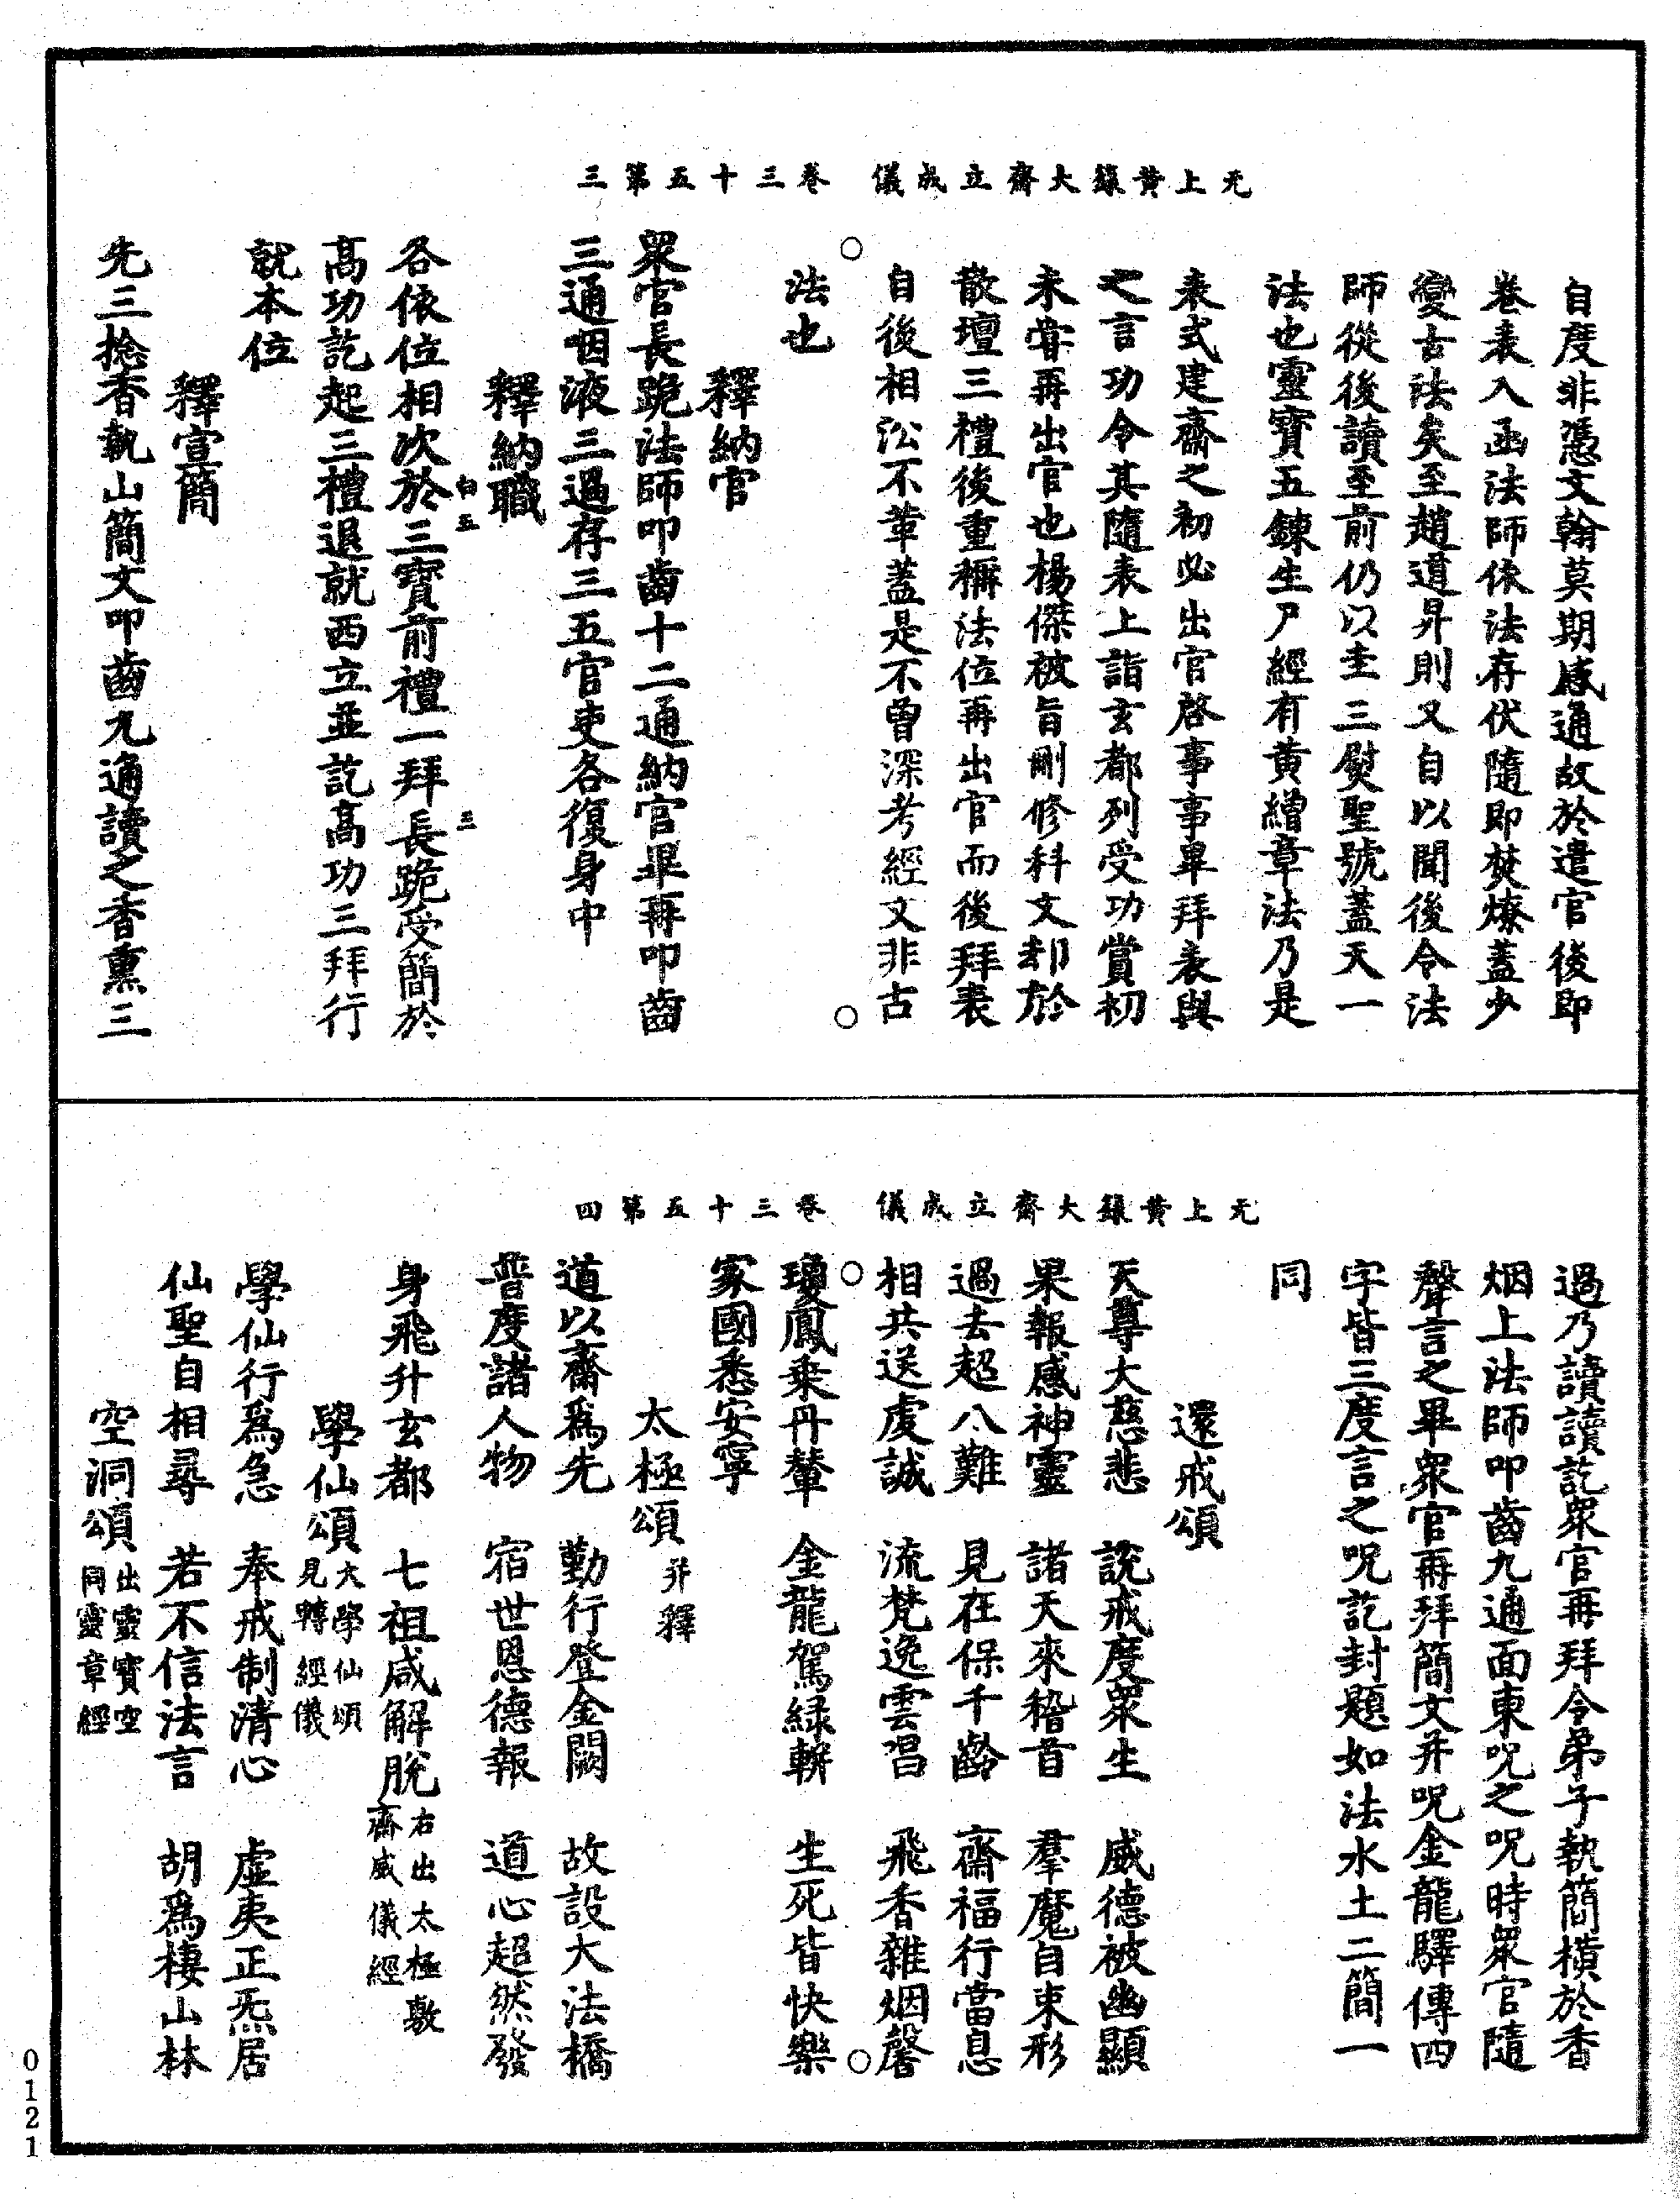 无上黄籙大齋立成儀 卷三十五第三
自度非憑文翰莫期感通故於遣官後即
卷表入函法師依法存伏隨即焚燎蓋少
變古法矣至趙道昇則又自以聞後令法
師從後讀至前仍以圭三熨聖號蓋天一
法也靈寶五鍊生尸經有黄繒章法乃是
表式建齋之初必出官啓事事畢拜表與
之言功令其隨表上詣玄都列受功賞初
未甞再出官也楊傑被旨刪修科文却於
散壇三禮後重稱法位再出官而後拜表
自後相沿不革蓋是不曾深考經文非古
法也
釋納官
衆官長跪法師叩齒十二通納官畢再叩齒
三通咽液三過存三五官吏各復身中
釋納職
各依位相次於三寶前禮一拜長跪受簡於
高功訖起三禮退就西立並訖高功三拜行
就本位
釋宣簡
先三捻香執山簡文叩齒九通讀之香熏三
无上黄籙大齋立成儀 卷三十五第四
過乃讀讀訖衆官再拜令弟子執簡橫於香
烟上法師叩齒九通面東呪之呪時衆官隨
聲言之畢衆官再拜簡文并呪金龍驛傳四
字皆三度言之呪訖封題如法水土二簡一
同
還戒頌
天尊大慈悲 説戒度衆生 威德被幽顯
果報感神靈 諸天來稽首 羣魔自束形
過去超八難 見在保千齡 齋福行當息
相共送虔誠 流梵逸雲唱 飛香雜烟馨
瓊鳳乗丹輦 金龍駕緑軿 生死皆快樂
家國悉安寧
太極頌 并釋
道以齋爲先 勤行登金闕 故設大法橋
普度諸人物 宿世恩德報 道心超然發
身飛升玄都 七祖咸解脫 右出太極敷齋威儀經
學仙頌 大學仙頌見轉經儀
學仙行爲急 奉戒制清心 虛夷正炁居
仙聖自相尋 若不信法言 胡爲棲山林
空洞頌 出靈寶空同靈章經
0121